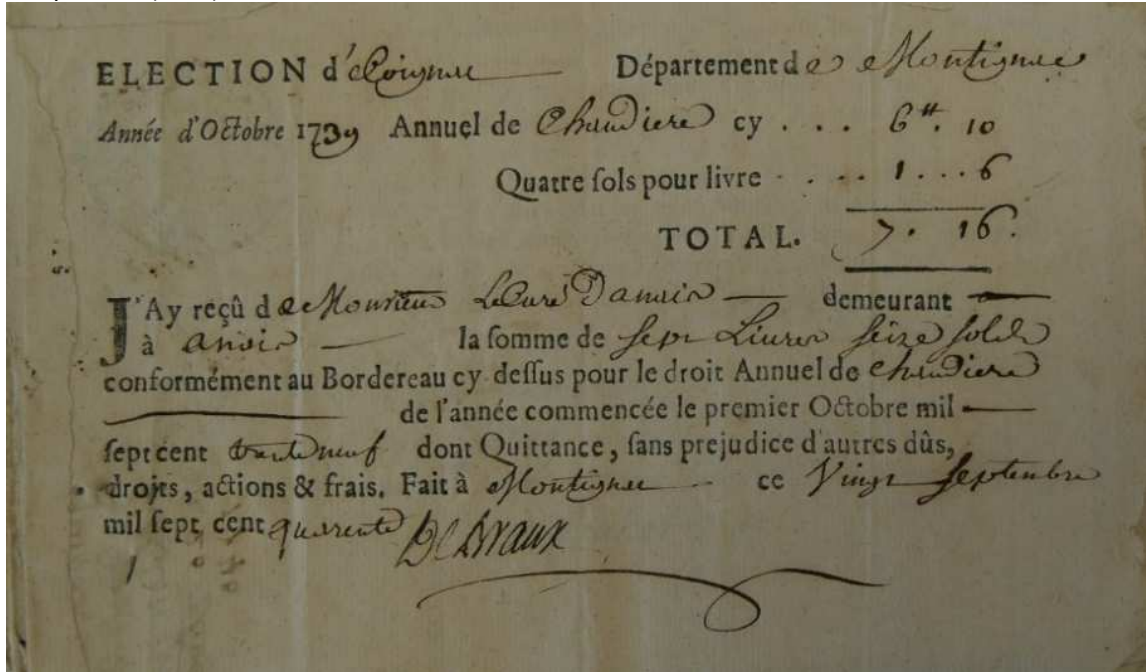 ELECTION d'Coignac Département de Montignac
Année d'Octobre 1739 Annuel de Chaudiere cy . . . 6ᵗᵗ. 10
Quatre sols pour livre . . . . 1 . . . 6
TOTAL. 7. 16.
J'Ay reçû de Monsieur Le Curé Danais demeurant
à anais la somme de sept Livres seize solds
conformément au Bordereau cy dessus pour le droit Annuel de chaudiere
de l'année commencée le premier Octobre mil
sept cent trente neuf dont Quittance, sans prejudice d'autres dûs,
droits, actions & frais. Fait à Montignac ce Vingt Septembre
mil sept cent quarente